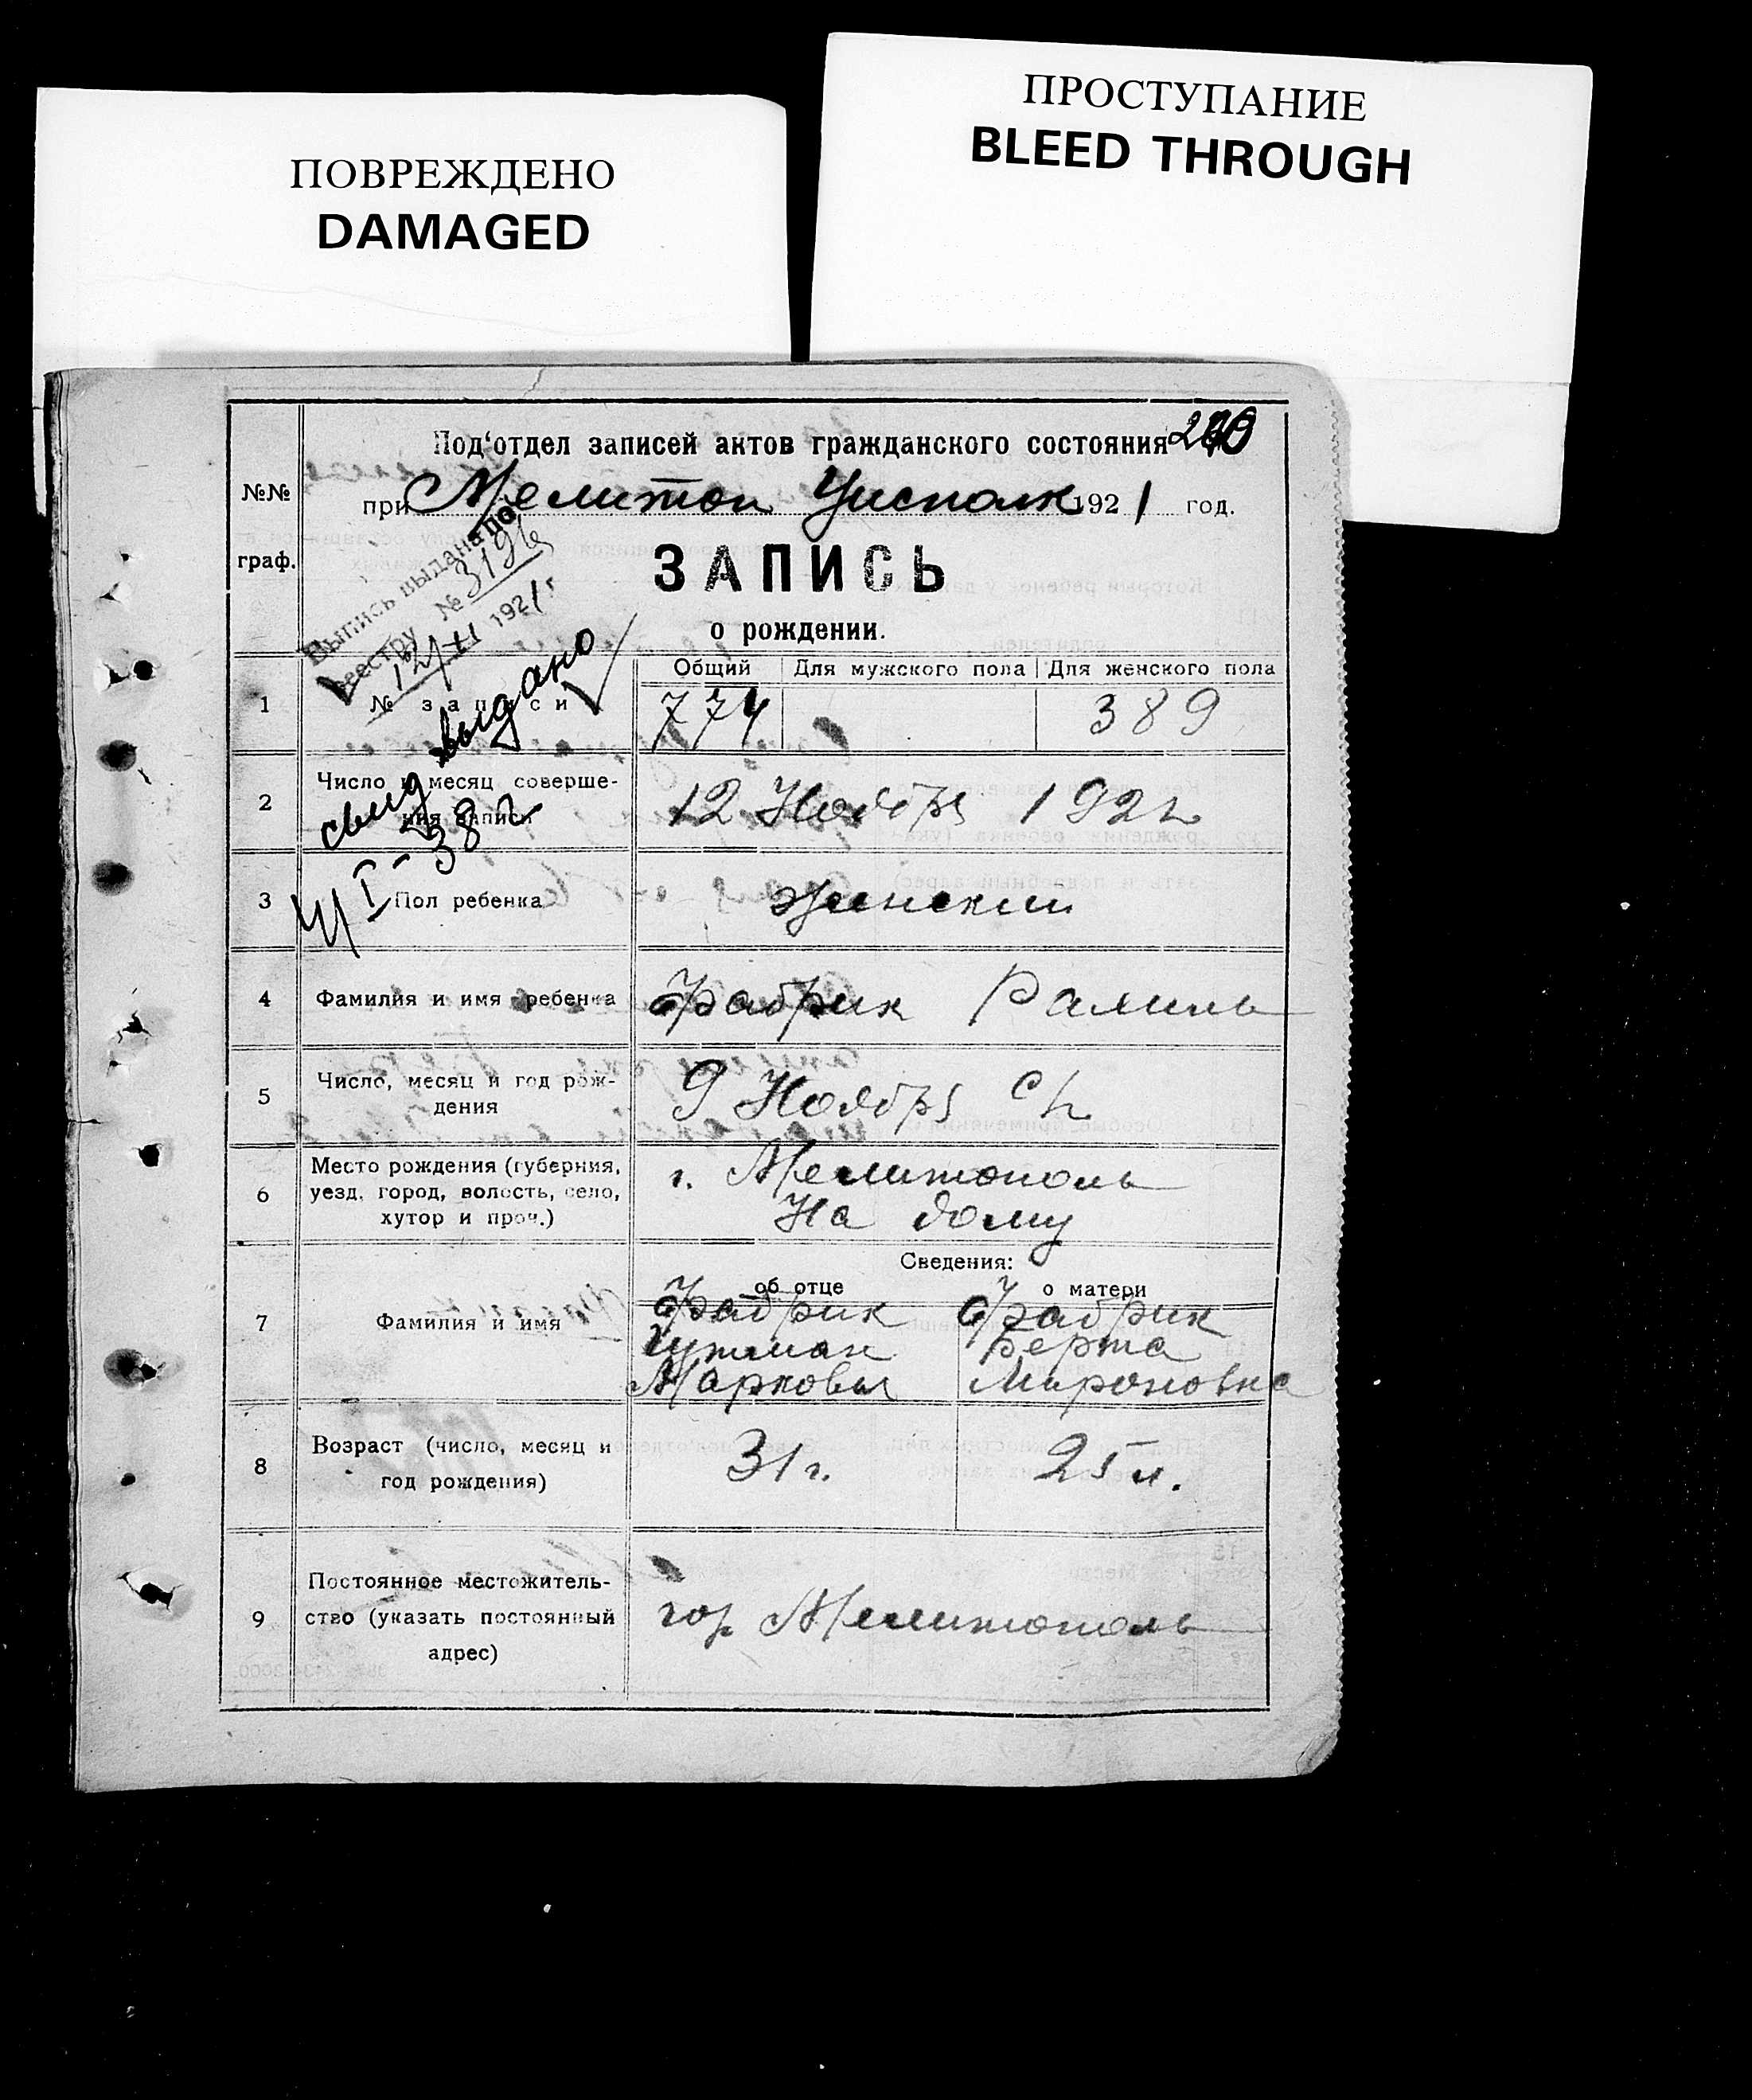 ПОВРЕЖДЕНО
DAMAGED
ПРОСТУПАНИЕ
BLEED THROUGH
№№ граф.
Под'отдел записей актов гражданского состояния
при Мелитоп Уисполк 1921 год.
ЗАПИСЬ
о рождении.
Выпись выдана по
реестру № 3196
12/XI 1921 г
свид выдано
4/I-38 г
Общий Для мужского пола Для женского пола
1 № записи 774 389
2 Число и месяц соверше-
ния записи 12 Ноября 192 г
3 Пол ребенка женский
4 Фамилия и имя ребенка Фабрик Рахиль
5 Число, месяц и год рож-
дения 9 Ноября с г.
6 Место рождения (губерния,
уезд, город, волость, село,
хутор и проч.)
г. Мелитополь
На дому
Сведения:
об отце о матери
7 Фамилия и имя
Фабрик Фабрик
Гутман Берта
Маркович Мироновна
8 Возраст (число, месяц и
год рождения) 31 г. 25 л.
9 Постоянное местожитель-
ство (указать постоянный
адрес) гор Мелитополь